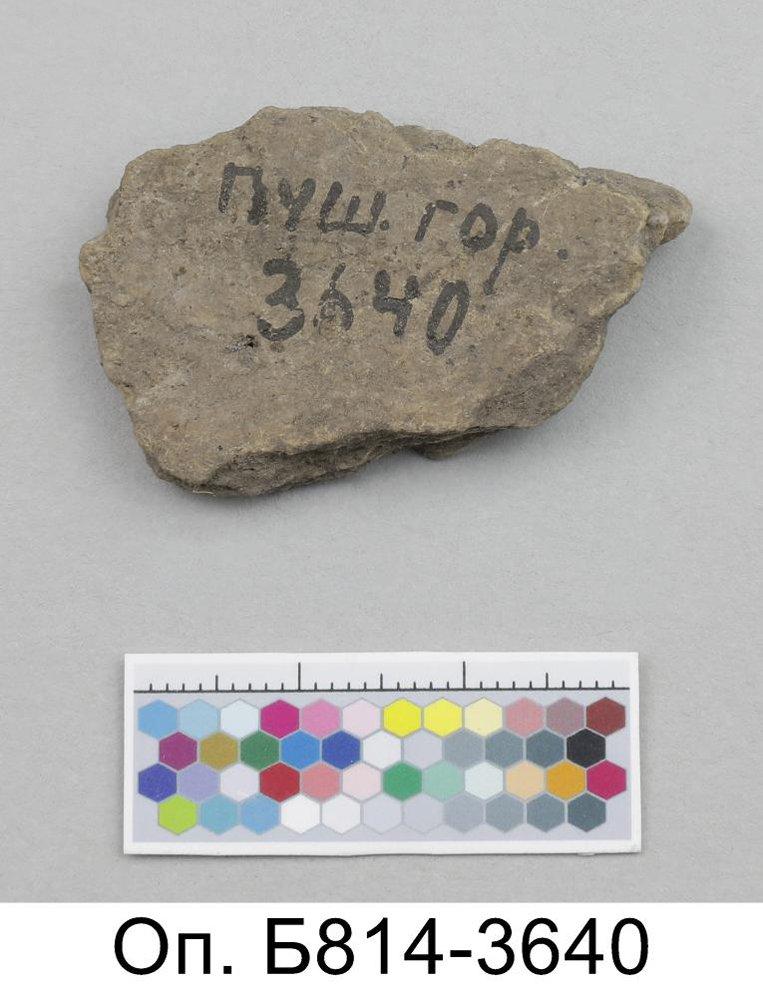 пуш. гор.
3640
Оп. Б814-3640